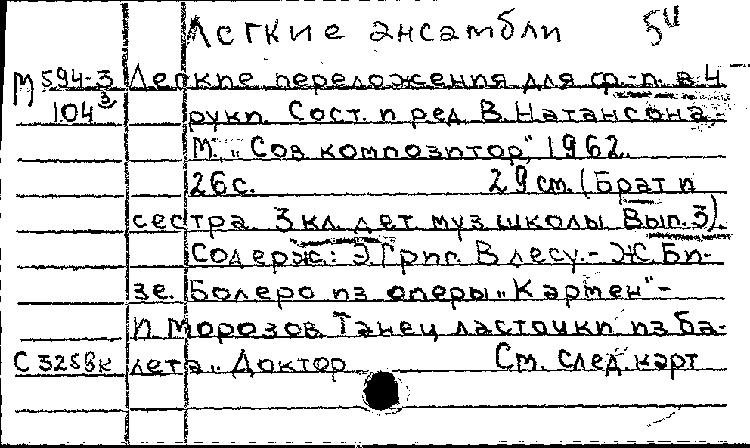 Легкие ансамбли 54
М 594-3 Легкие переложения для ф.-п. в 4
104³ руки. Сост. и ред. В. Натансона.
М. „Сов композитор" 1962.
26 с. 29 см. (Брат и
сестра. 3 кл. дет. муз школы. Вып. 3).
Содерж.: Э. Григ. В лесу. - Ж. Би-
зе. Болеро из оперы „Кармен" -
И Морозов. Танец ласточки из ба-
С 3258к лета „Доктор См. след. карт